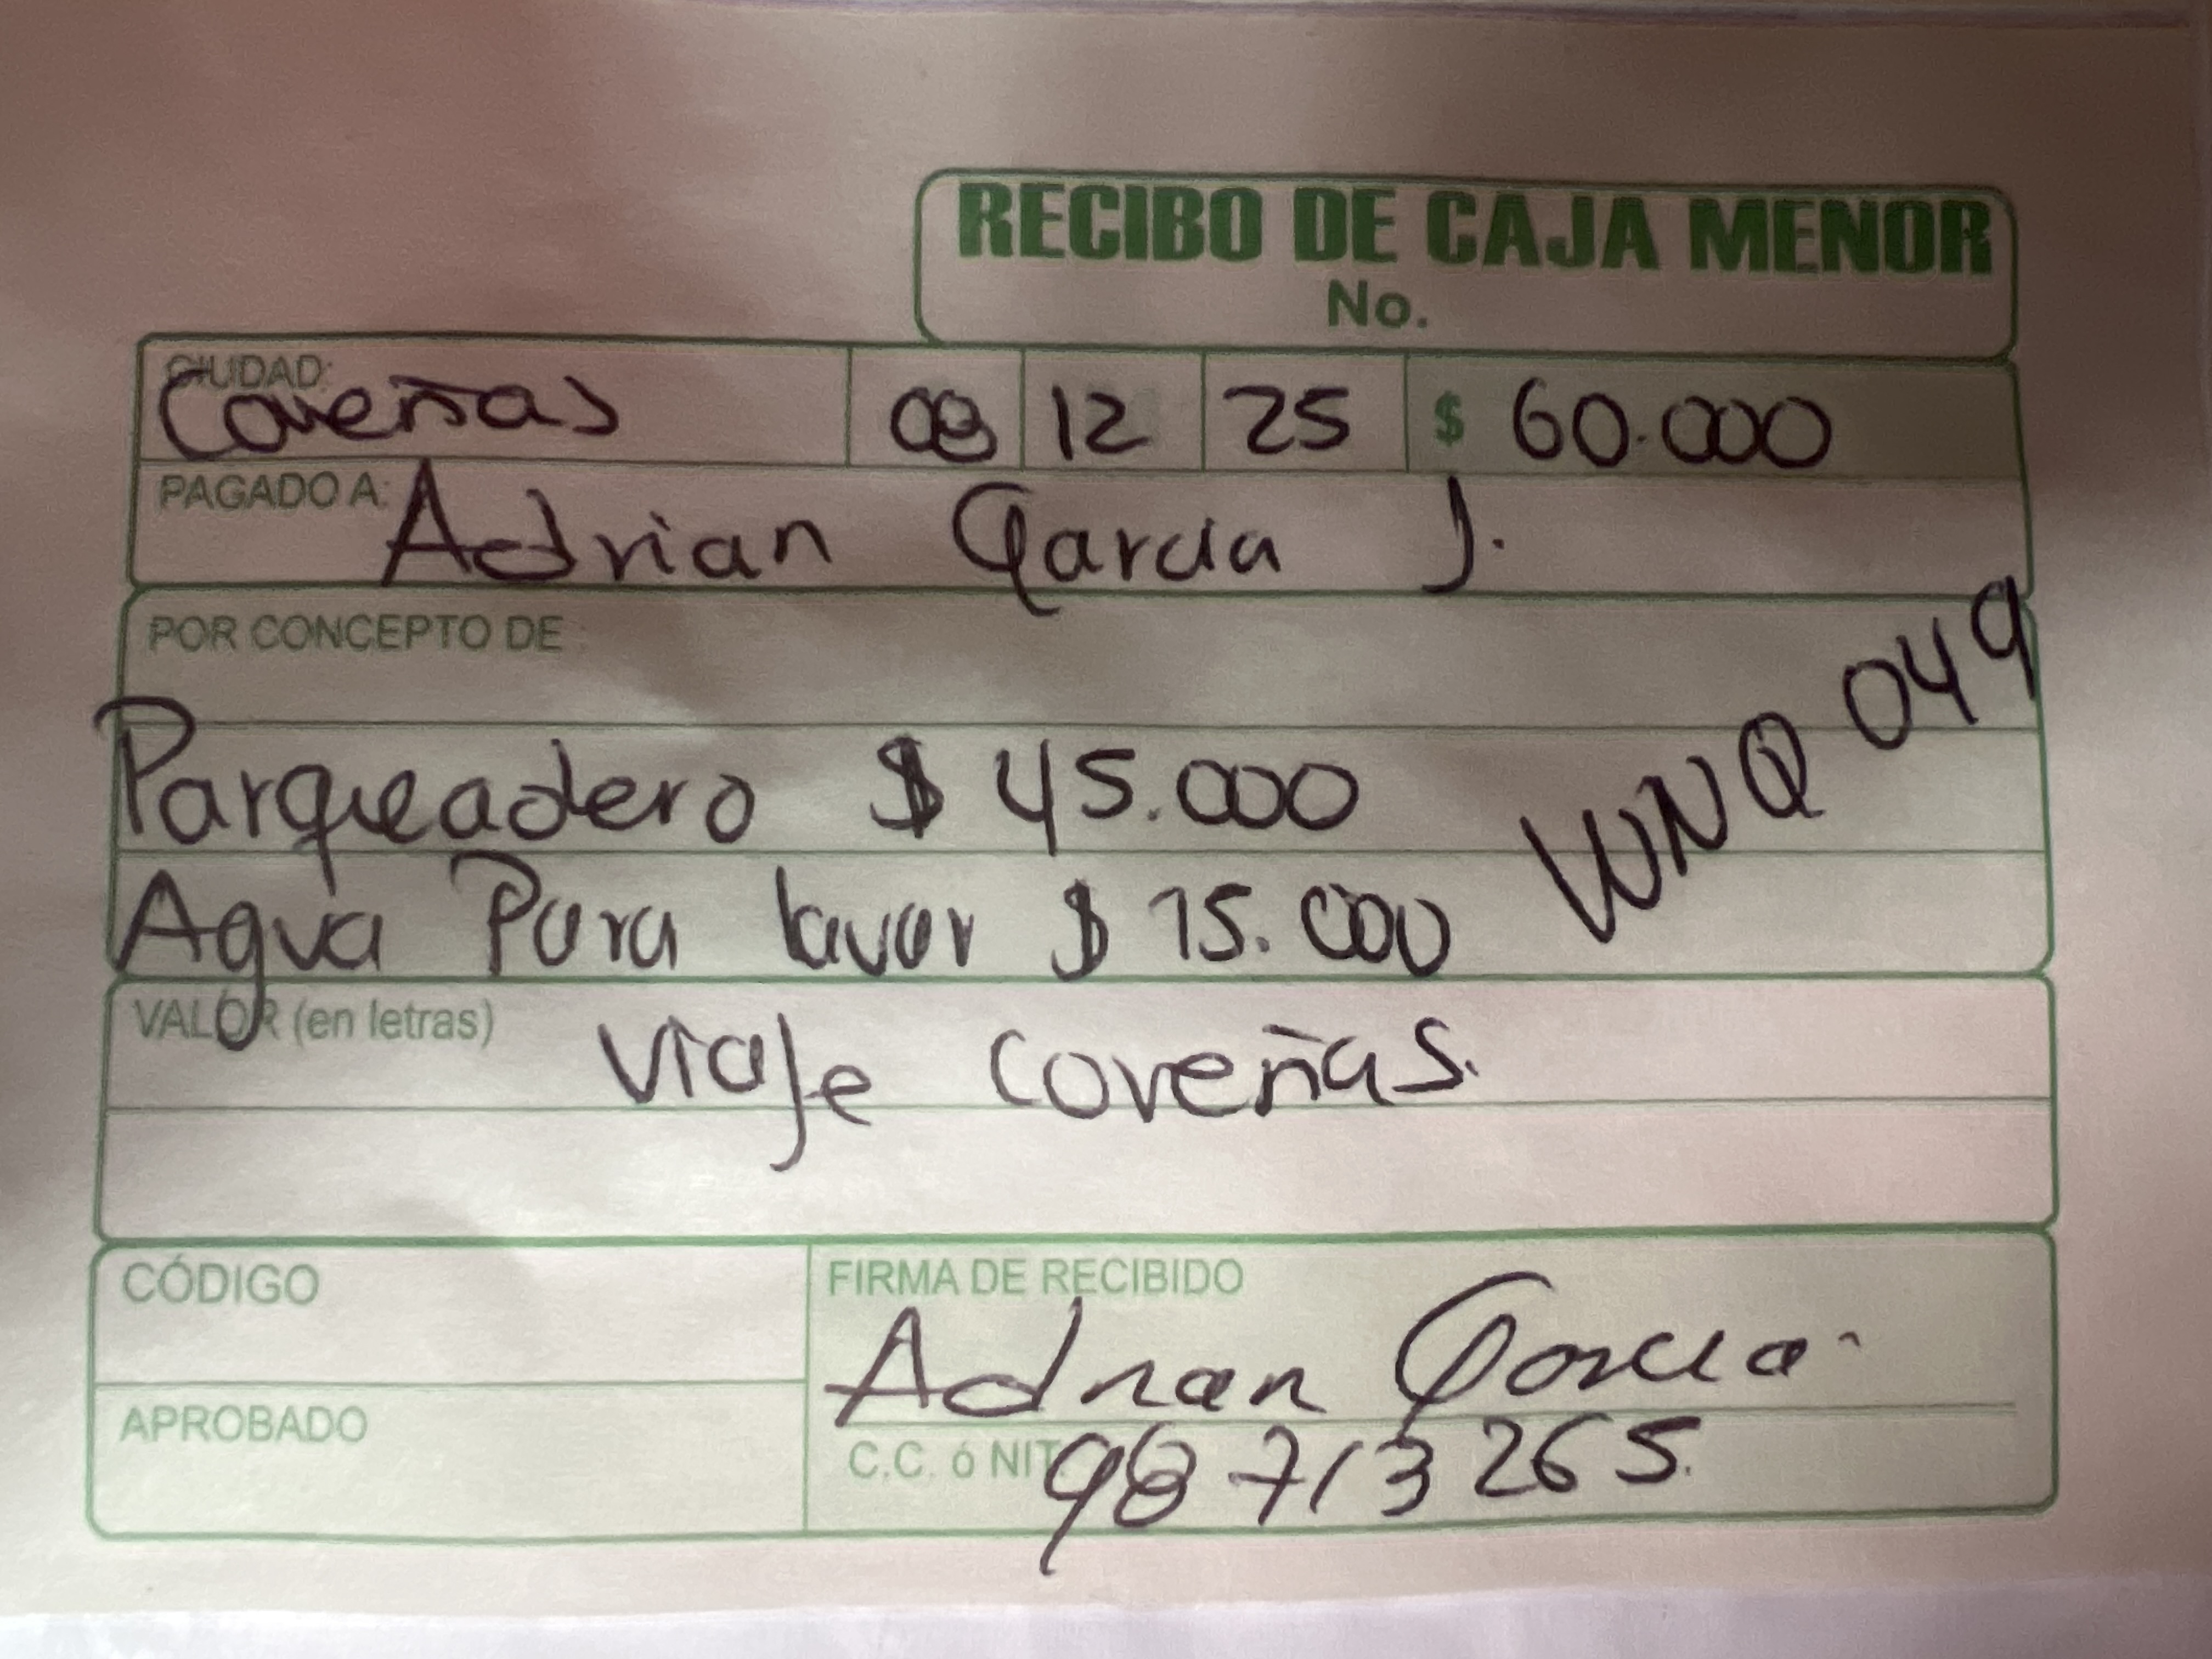 RECIBO DE CAJA MENOR
No.
CIUDAD:
Coveñas 08 12 25 $ 60.000
PAGADO A: Adrian Garcia J.
POR CONCEPTO DE
Parqueadero $ 45.000
WNQ 049
Agua Para lavar $ 15.000
VALOR (en letras) viaje coveñas.
CÓDIGO
FIRMA DE RECIBIDO
Adrian Garcia
APROBADO
C.C. ó NIT 98713265.